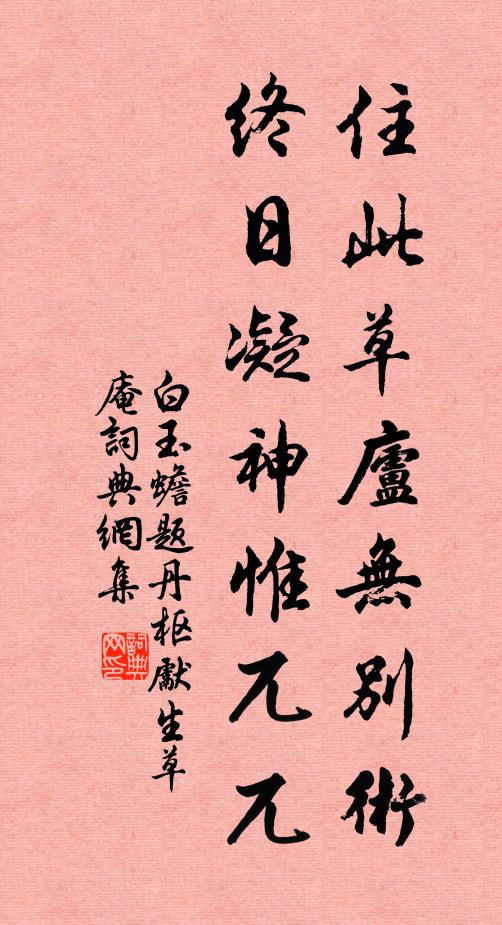 住此草廬無別術
終日凝神惟兀兀
白玉蟾題丹樞獻生草
庵詞典網集
詞典
網印